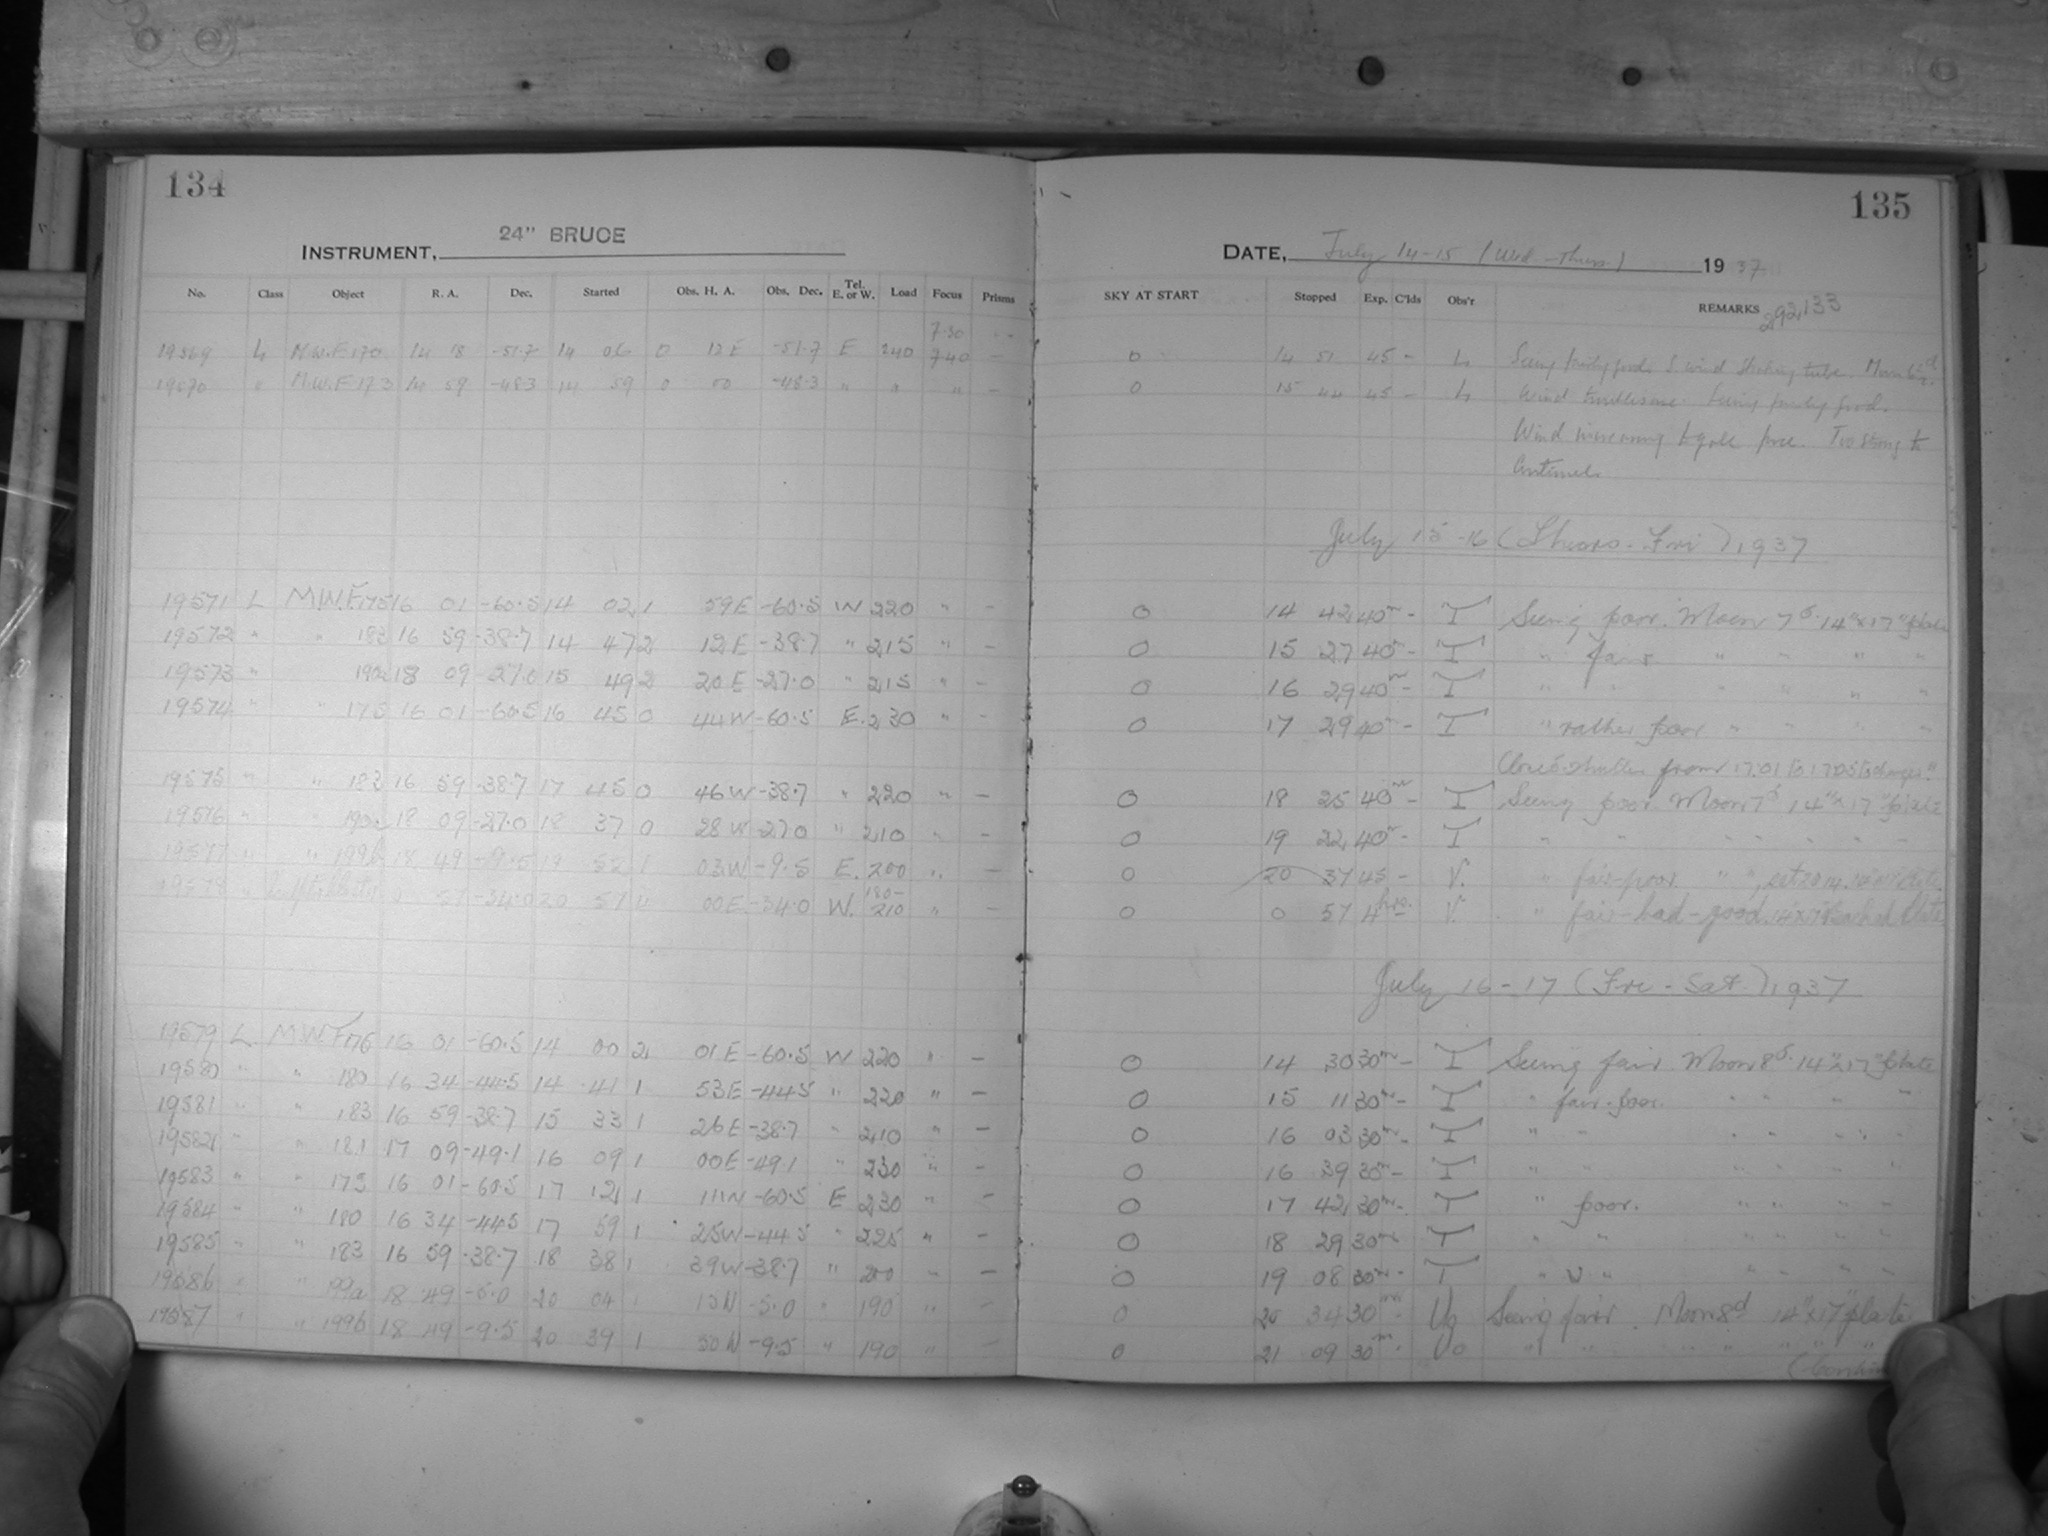 134
INSTRUMENT, 24" BRUCE
No. Class Object R. A. Dec. Started Obs. H. A. Obs. Dec. Tel. E. or W. Load Focus Prisms
7.30
19569 L M.W.F. 170 14 18 -51.7 14 06 0 12 E -51.7 E 240 7.40 -
19570 " M.W.F. 173 14 59 -48.3 14 59 0 00 -48.3 " " " -
19571 L M.W.F. 175 16 01 -60.5 14 02 1 59 E -60.5 W 220 " -
19572 " " 183 16 59 -38.7 14 47 2 12 E -38.7 " 215 " -
19573 " " 190a 18 09 -27.0 15 49 2 20 E -27.0 " 215 " -
19574 " " 175 16 01 -60.5 16 45 0 44 W -60.5 E. 230 " -
19575 " " 183 16 59 -38.7 17 45 0 46 W -38.7 " 220 " -
19576 " " 190a 18 09 -27.0 18 37 0 28 W -27.0 " 210 " -
19577 " " 199b 18 49 -9.5 19 52 1 03 W -9.5 E. 200 " -
19578 " 0 57 -34.0 20 57 4 00 E -34.0 W. 180-210 " -
19579 L M.W.F. 175 16 01 -60.5 14 00 2 01 E -60.5 W 220 " -
19580 " " 180 16 34 -44.5 14 41 1 53 E -44.5 " 220 " -
19581 " " 183 16 59 -38.7 15 33 1 26 E -38.7 " 210 " -
19582 " " 181 17 09 -49.1 16 09 1 00 E -49.1 " 230 " -
19583 " " 175 16 01 -60.5 17 12 1 11 W -60.5 E 230 " -
19584 " " 180 16 34 -44.5 17 59 1 25 W -44.5 " 225 " -
19585 " " 183 16 59 -38.7 18 38 1 39 W -38.7 " 200 - -
19586 " " 199a 18 49 -5.0 20 04 1 15 W -5.0 " 190 " -
19587 " " 199b 18 49 -9.5 20 39 1 50 W -9.5 " 190 " -
135
DATE, July 14-15 (Wed - Thurs.) 1937
SKY AT START Stopped Exp. C'lds Obs'r REMARKS 292,133
0 14 51 45 - L Seeing fairly good. S wind shaking tube. Moon 6d
0 15 44 45 - L Wind troublesome. Seeing fairly good.
Wind increasing to gale force. Too strong to
continue.
July 15-16 (Thurs. - Fri) 1937
0 14 42 40m - T Seeing poor. Moon 7d. 14"x17" plate
0 15 27 40m - T " fair " " " "
0 16 29 40m - T " " " " " "
0 17 29 40m - T " rather poor " " " "
Closed shutter from 17.01 to 17.05
0 18 25 40m - T Seeing poor Moon 7d 14"x17" plate
0 19 22 40m - T " " " " " "
0 20 37 45 - V. " fair-poor. " "
0 0 57 4 hrs. V. " fair-bad-good. 14"x17" Backed Plate
July 16-17 (Fri - Sat.) 1937
0 14 30 30m - T Seeing fair. Moon 8d. 14"x17" plate
0 15 11 30m - T " fair-poor. " " " "
0 16 03 30m - T " " " " " "
0 16 39 30m - T " " " " " "
0 17 42 30m - T " poor. " " " "
0 18 29 30m - T " " " " " "
0 19 08 30m - T " " " " "
0 20 34 30m - Vo Seeing fair. Moon 8d 14"x17" plate
0 21 09 30m - Vo " " " " " "